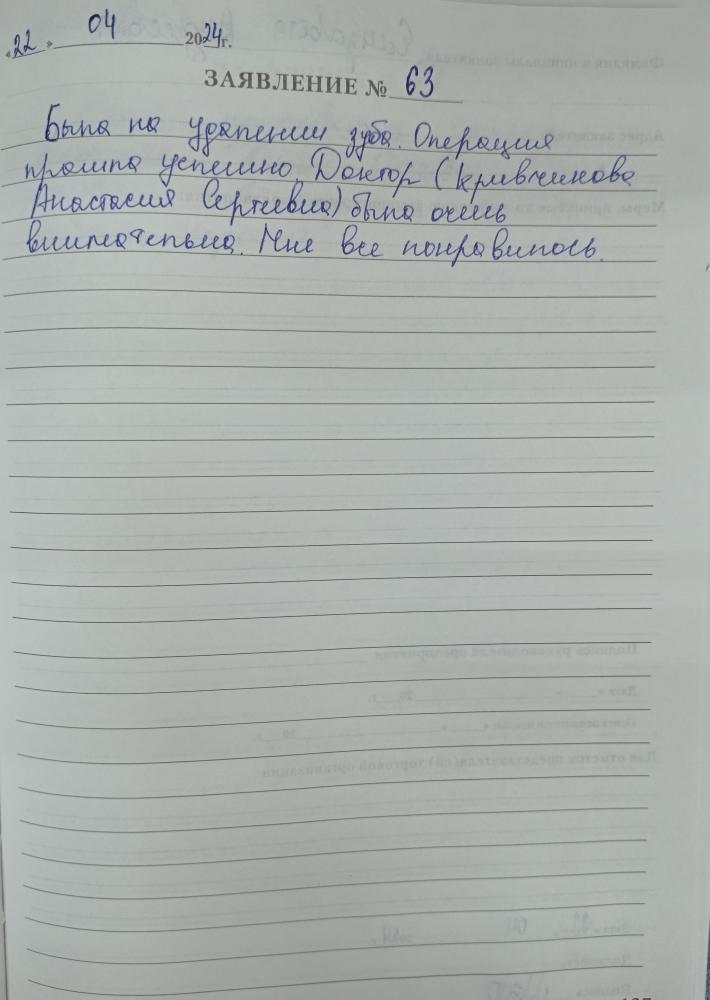 «22» 04 2024г.
ЗАЯВЛЕНИЕ № 63
Была на удалении зуба. Операция
прошла успешно. Доктор (Кривчикова
Анастасия Сергеевна) была очень
внимательна. Мне все понравилось.